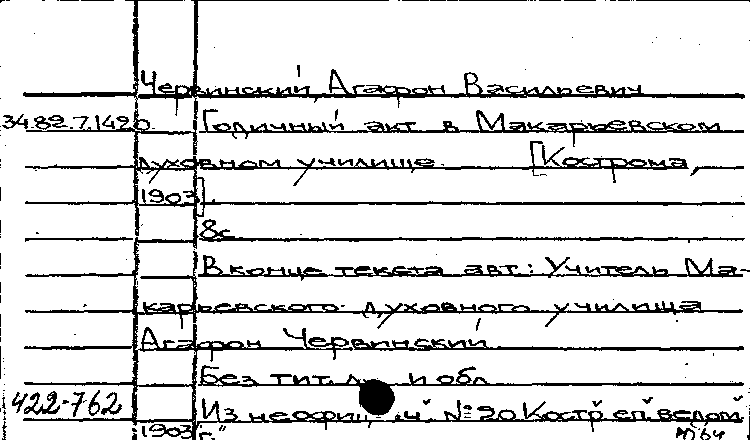 Червинский, Агафон Васильевич
34.82.7.1420 Годичный акт в Макарьевском
духовном училище. [Кострома,
1903].
8с.
В конце текста авт.: Учитель Ма-
карьевского духовного училища
Агафон Червинский.
Без тит. л. и обл.
422-762 Из неофиц. ч. № 20 Костр. еп. ведом.
1903 г."